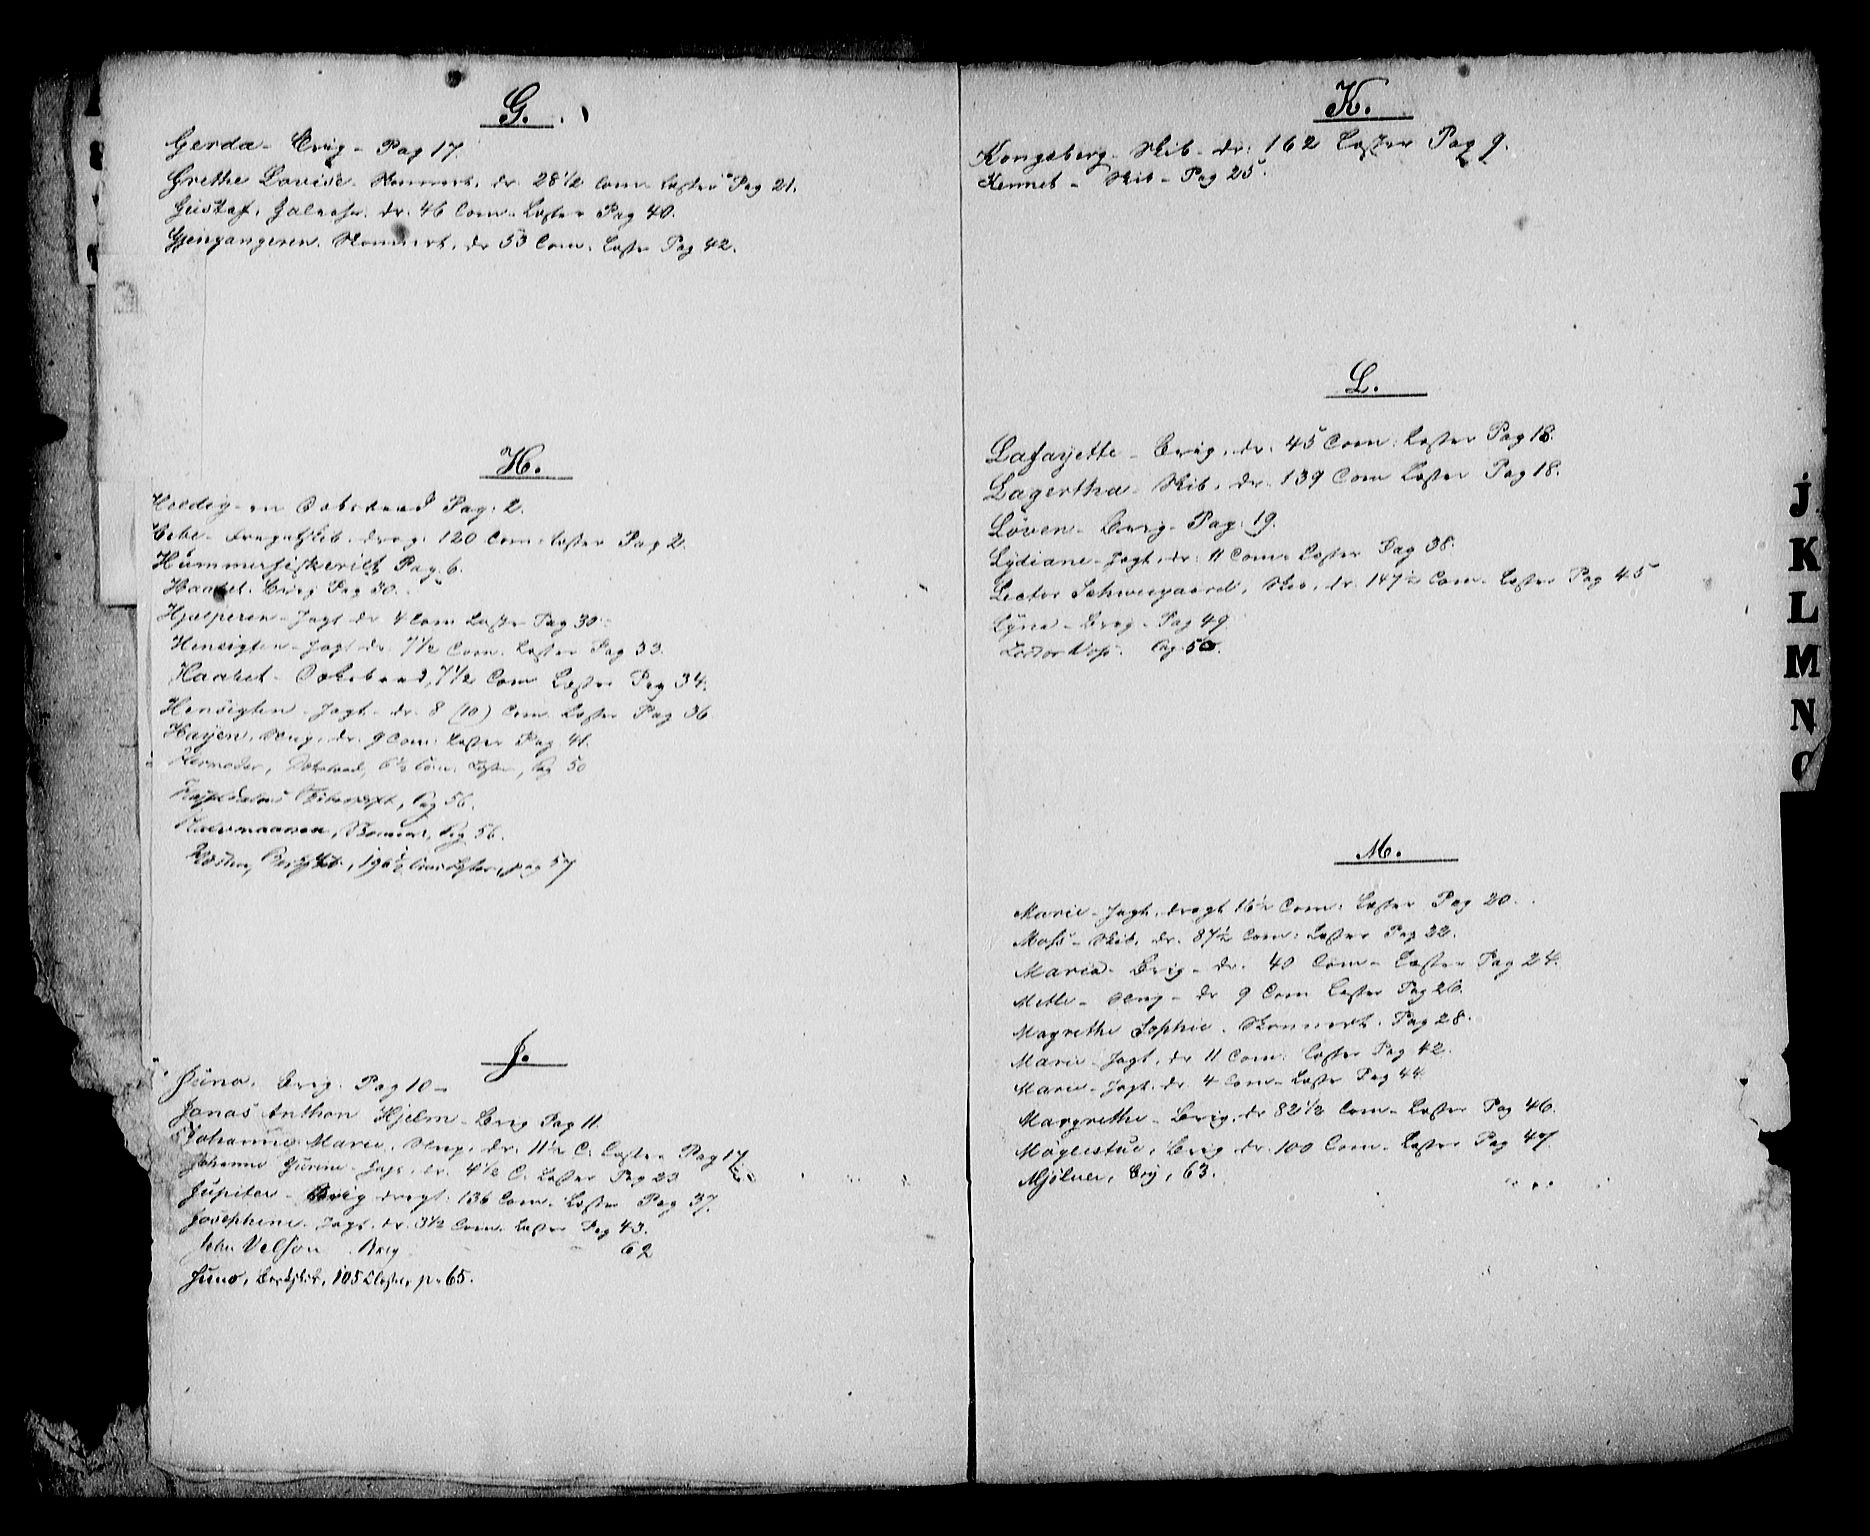 G.
Gerda - Brig - Pag 17.
Grethe Lovise - Skonnert, dr. 28 1/2 Com. Læster Pag 21.
Gustaf, Galease, dr. 46 Com. Læster Pag 40.
Gjengangeren, Skonnert, dr 53 Com. Læster Pag 42.
H.
Heldig - en Dæksbaad Pag: 2.
Hebe - Fregatskib, dræg: 120 Com: Læster Pag 2.
Hummerfiskeriet Pag. 6.
Haabet. Brig Pag 30.
Hjælperen - Jagt dr 4 Com Læster Pag 30.
Hensigten - Jagt dr. 7 1/2 Com. Læster Pag 33.
Haabet - Dæksbaad, 7 1/2 Com Læster Pag 34.
Hensigten - Jagt - dr. 8 (10) Com. Læster Pag 36.
Hayen, Slup, dr. 9 Com: Læster Pag 41.
Dæksbaad, 6 1/2 Com. Læster, Pag 50
Pag 56.
Havmanden, Skonnert, Pag 56.
Barkskib, 196 1/2 Com Læster, pag 57
J.
Juno, Brig. Pag 10 -
Jonas Anthon Hjelm - Brig Pag 11.
Johanne Marie, Slup, dr. 11 1/2 C. Læster Pag 17.
Johanne Gurine - Jagt, dr. 4 1/2 C. Læster Pag 23
Jupiter - Brig drægt. 136 Com. Læster Pag 37.
Josephine. Jagt. dr. 3 1/2 Com. Læster Pag 43.
John Nelson. Brig 62
Juno, Barkskib, 105 Clæster, p. 65.
K.
Kongsberg - Skib - dr: 162 Læster Pag 9.
Kennet - Skib - Pag 25.
L.
Lafayette - Brig, dr. 45 Com: Læster Pag 18.
Lagertha - Skib, dr. 139 Com Læster Pag 18.
Løven - Brig - Pag: 19.
Lydiane - Jagt, dr: 11 Com. Læster Pag 38.
Lector Schweigaard, Skib, dr. 147 1/2 Com. Læster Pag 45
Lyna - Brig - Pag 49
Lector Voss. Pag. 50.
M.
Marie - Jagt, drægt 16 1/2 Com: Læster Pag 20.
Moss - Skib, dr. 87 1/2 Com: Læster Pag 22.
Maria - Brig - dr. 40 Com - Læster Pag 24.
Mette - Slup - dr 9 Com Læster Pag 26.
Magrethe Sophie. Skonnert. Pag 28.
Marie - Jagt, dr 11 Com: Læster Pag 42.
Marie - Jagt. dr. 4 Com - Læster Pag 44.
Margrethe - Brig, dr 82 1/2 Com - Læster Pag 46.
Møglestue, Brig dr. 100 Com. Læster Pag 47.
Mjølner, Brig, 63.
J
K
L
M
N
O